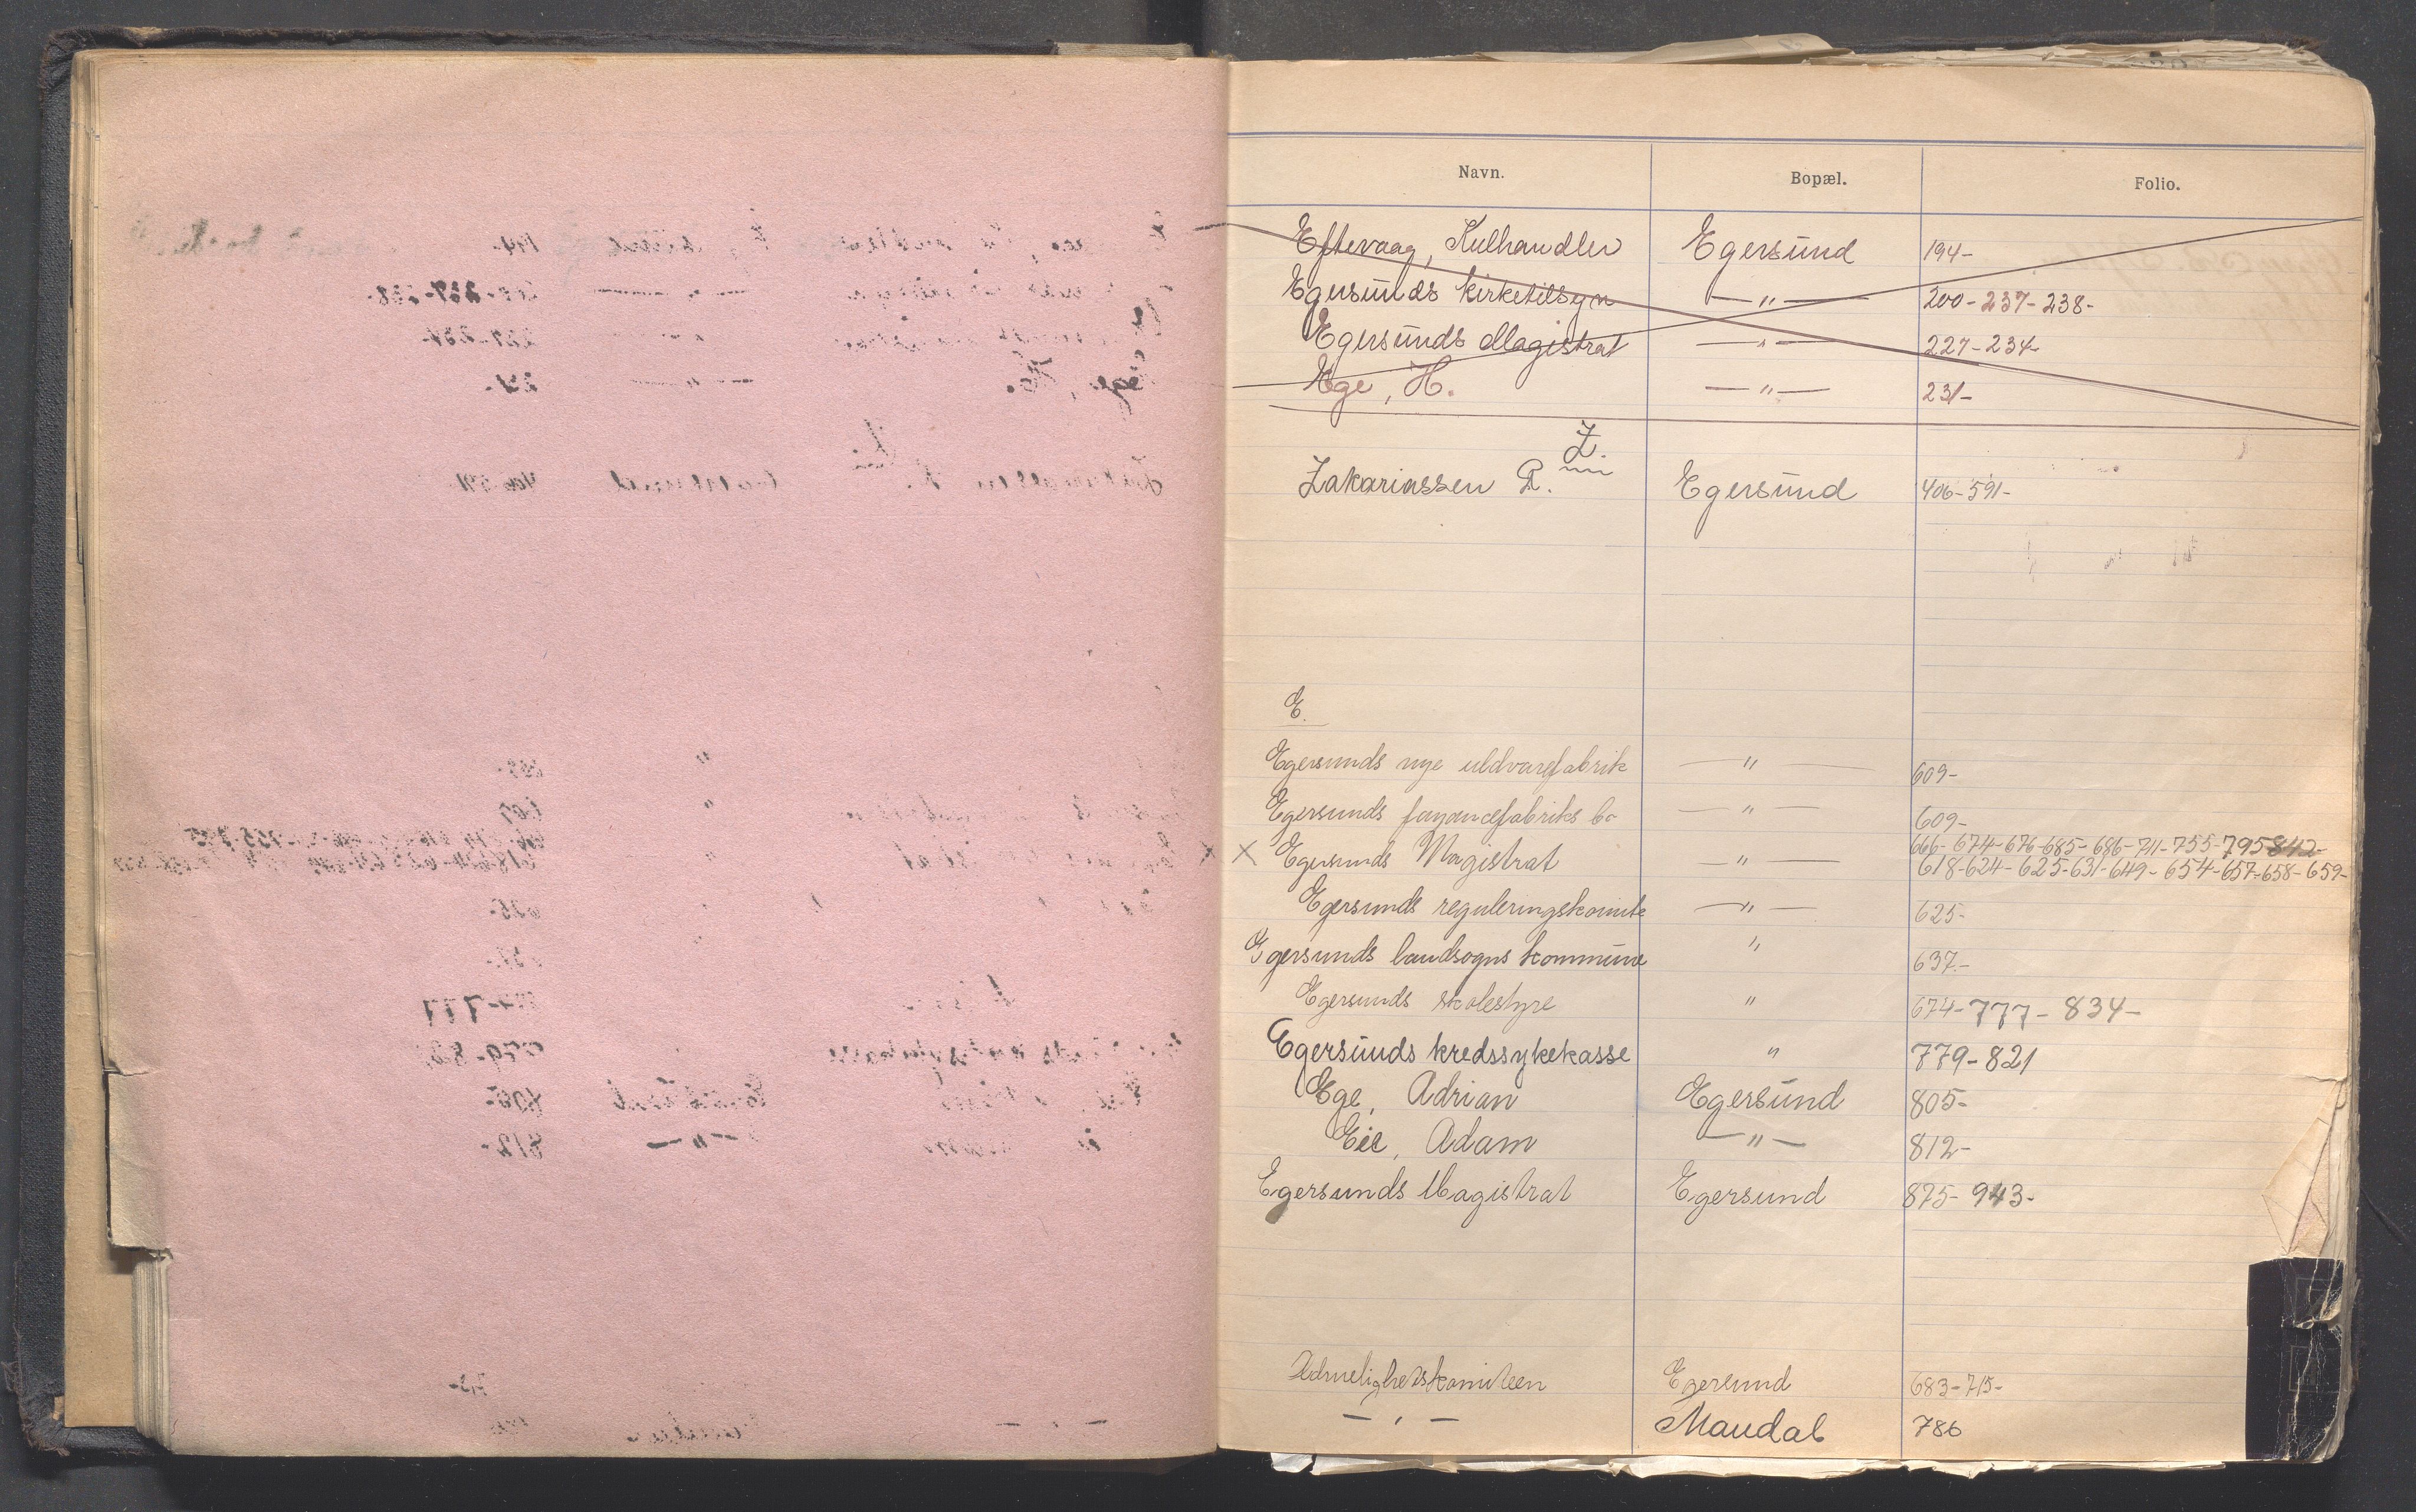 Navn. Bopæl. Folio.
Eftevaag, Kulhandler Egersund 194-
Egersunds Kirketilsyn —"— 200-237-238-
Egersunds Magistrat —"— 227-234-
Ege, H. —"— 231-
Z.
Zakariassen R. Egersund 406-591-
E.
Egersunds nye uldvarefabrik —"— 609-
Egersunds fayancefabriks Co —"— 609-
666-674-676-685-686-711-755-795-842-
X Egersunds Magistrat —"— 618-624-625-631-649-654-657-658-659-
Egersunds reguleringskomite —"— 625-
Egersunds landsogns kommune " 637-
Egersunds skolestyre " 674-777-834-
Egersunds kredssykekasse " 779-821
Ege, Adrian Egersund 805-
Eie, Adam —"— 812-
Egersunds Magistrat Egersund 875-943-
Ædruelighetskomiteen Egersund 683-715-
—"— Mandal 786